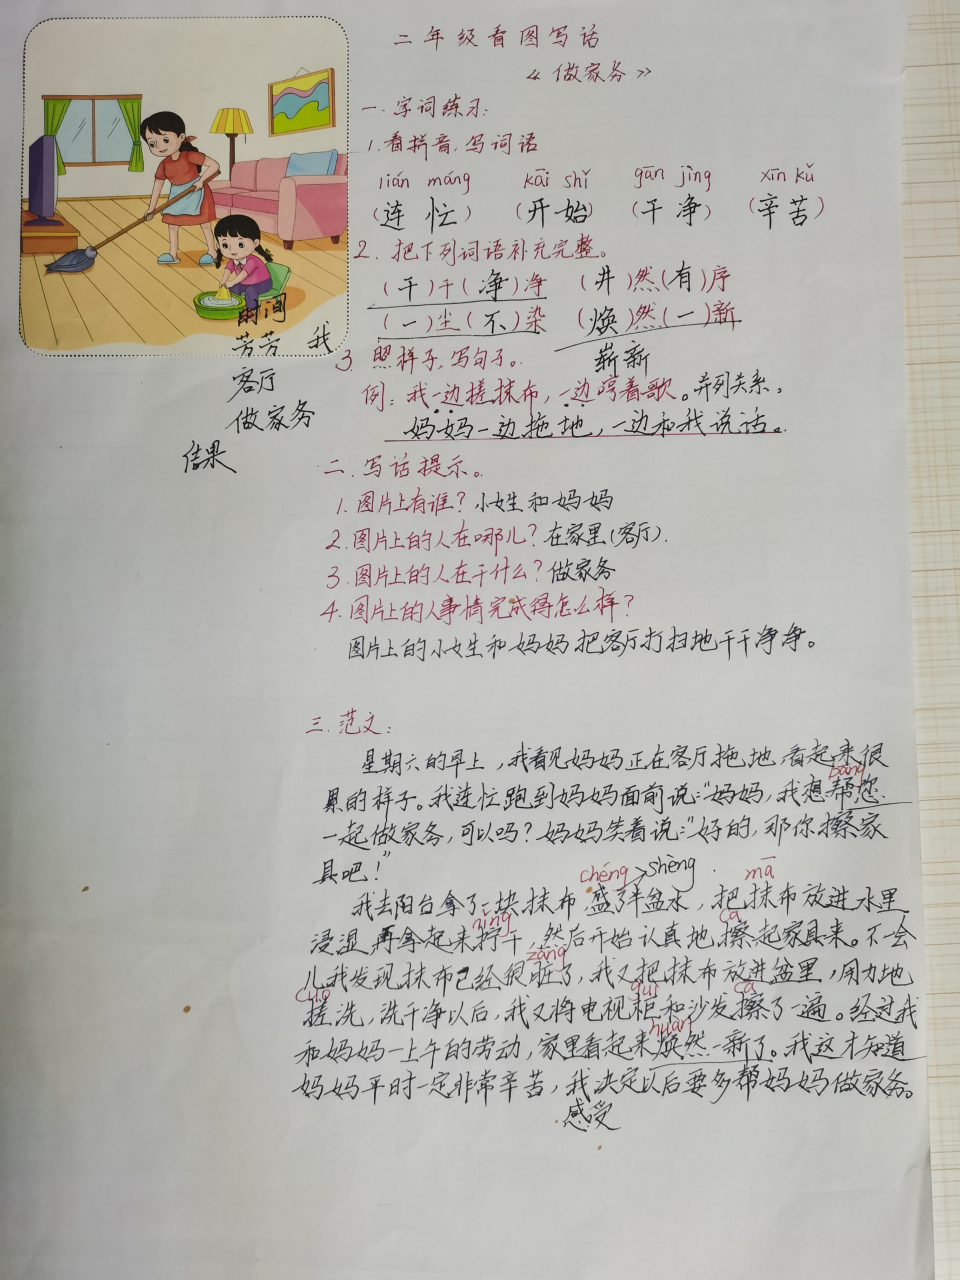 二年级看图写话
《做家务》
一.字词练习:
1.看拼音,写词语
lián máng kāi shǐ gān jìng xīn kǔ
(连忙) (开始) (干净) (辛苦)
2.把下列词语补充完整。
(干)干(净)净 (井)然(有)序
(一)尘(不)染 (焕)然(一)新
崭新
3.照样子,写句子。
例:我一边搓抹布,一边哼着歌。并列关系.
妈妈一边拖地,一边和我说话。
时间
芳芳 我
客厅
做家务
结果
二.写话提示。
1.图片上有谁?小女生和妈妈
2.图片上的人在哪儿?在家里(客厅).
3.图片上的人在干什么?做家务
4.图片上的人事情完成得怎么样?
图片上的小女生和妈妈把客厅打扫地干干净净。
三.范文:
星期六的早上,我看见妈妈正在客厅拖地,看起来很
bāng
累的样子。我连忙跑到妈妈面前说:“妈妈,我想帮您
一起做家务,可以吗?妈妈笑着说:“好的,那你擦家
具吧!”
chéng shèng mā
我去阳台拿了一块抹布,盛了半盆水,把抹布放进水里
nǐng cā
浸湿,再拿起来拧干,然后开始认真地擦起家具来。不一会
zāng
儿我发现抹布已经很脏了,我又把抹布放进盆里,用力地
cuō guì cā
搓洗,洗干净以后,我又将电视柜和沙发擦了一遍。经过我
huàn
和妈妈一上午的劳动,家里看起来焕然一新了。我这才知道
妈妈平时一定非常辛苦,我决定以后要多帮妈妈做家务。
感受